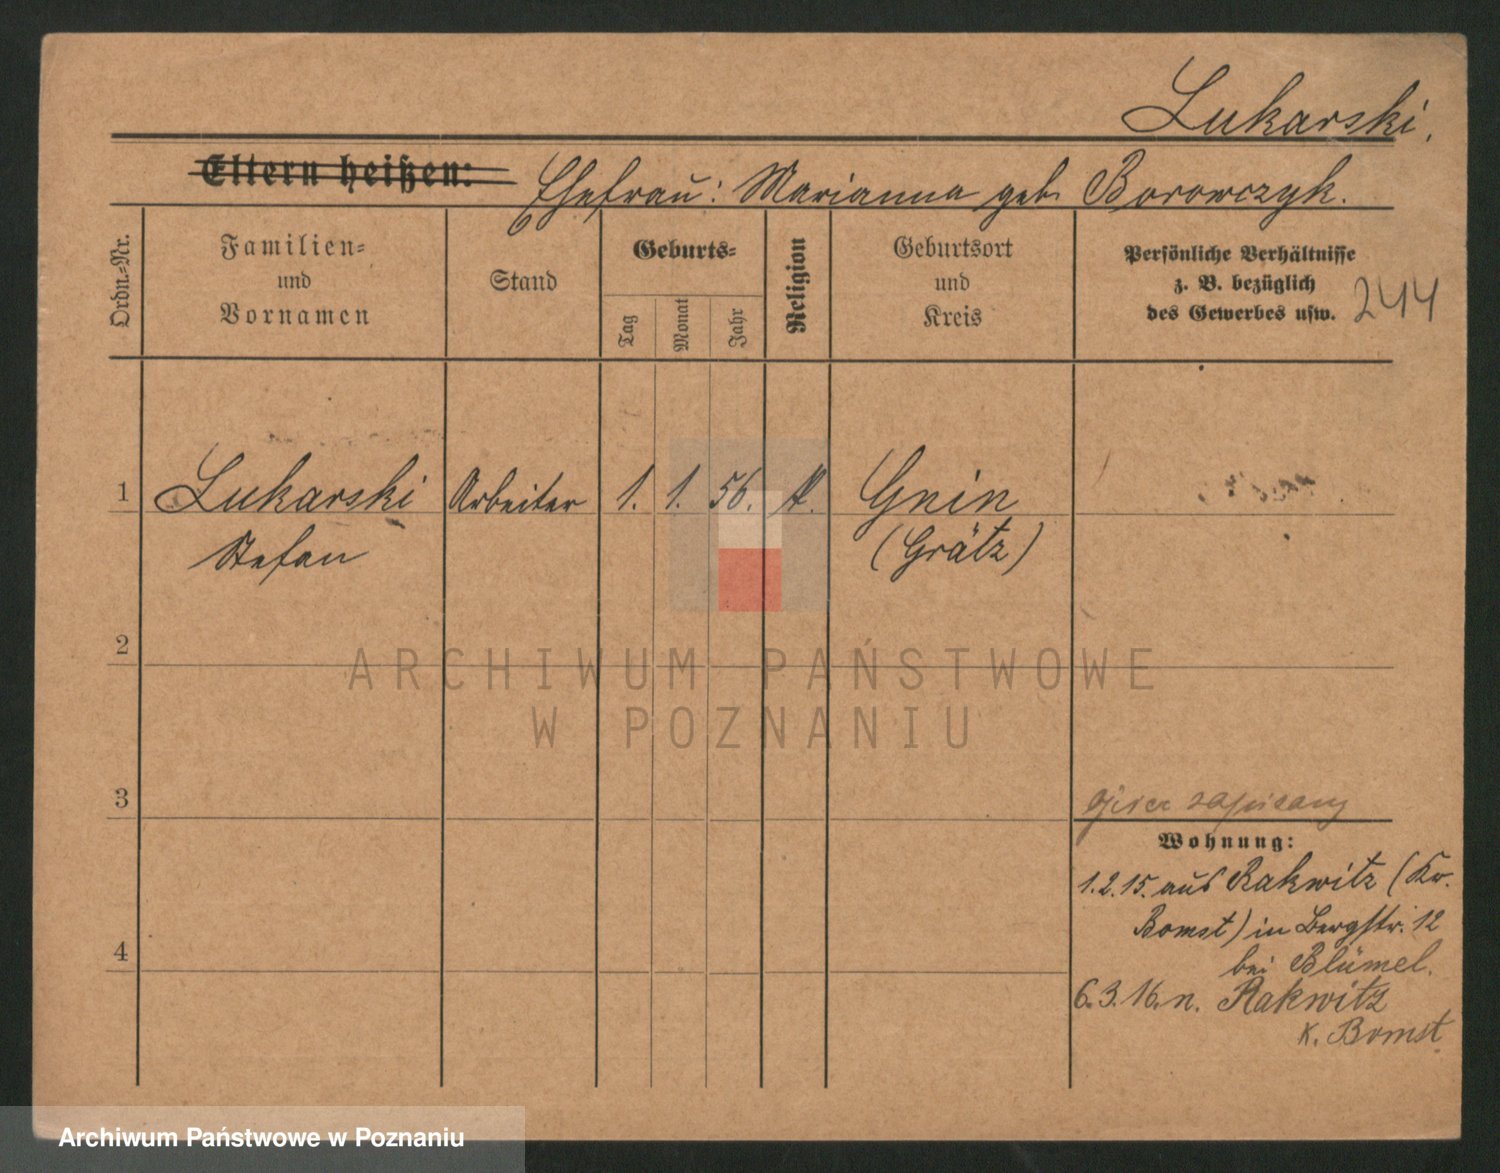 Lukarski.
Eltern heißen: Ehefrau: Marianna geb. Borowczyk.
Ordn.-Nr.
Familien-
und
Vornamen
Stand
Geburts-
Tag
Monat
Jahr
Religion
Geburtsort
und
Kreis
Persönliche Verhältnisse
z. B. bezüglich
des Gewerbes usw.
244
1 Lukarski Arbeiter 1. 1. 56. k. Gnin
Stefan (Grätz)
2
ARCHIWUM PAŃSTWOWE
W POZNANIU
3
zapisany
Wohnung:
1.2.15. aus Rakwitz (Kr.
Bomst) in Bergstr. 12
4
bei Blümel.
6.3.16. n. Rakwitz
K. Bomst
Archiwum Państwowe w Poznaniu